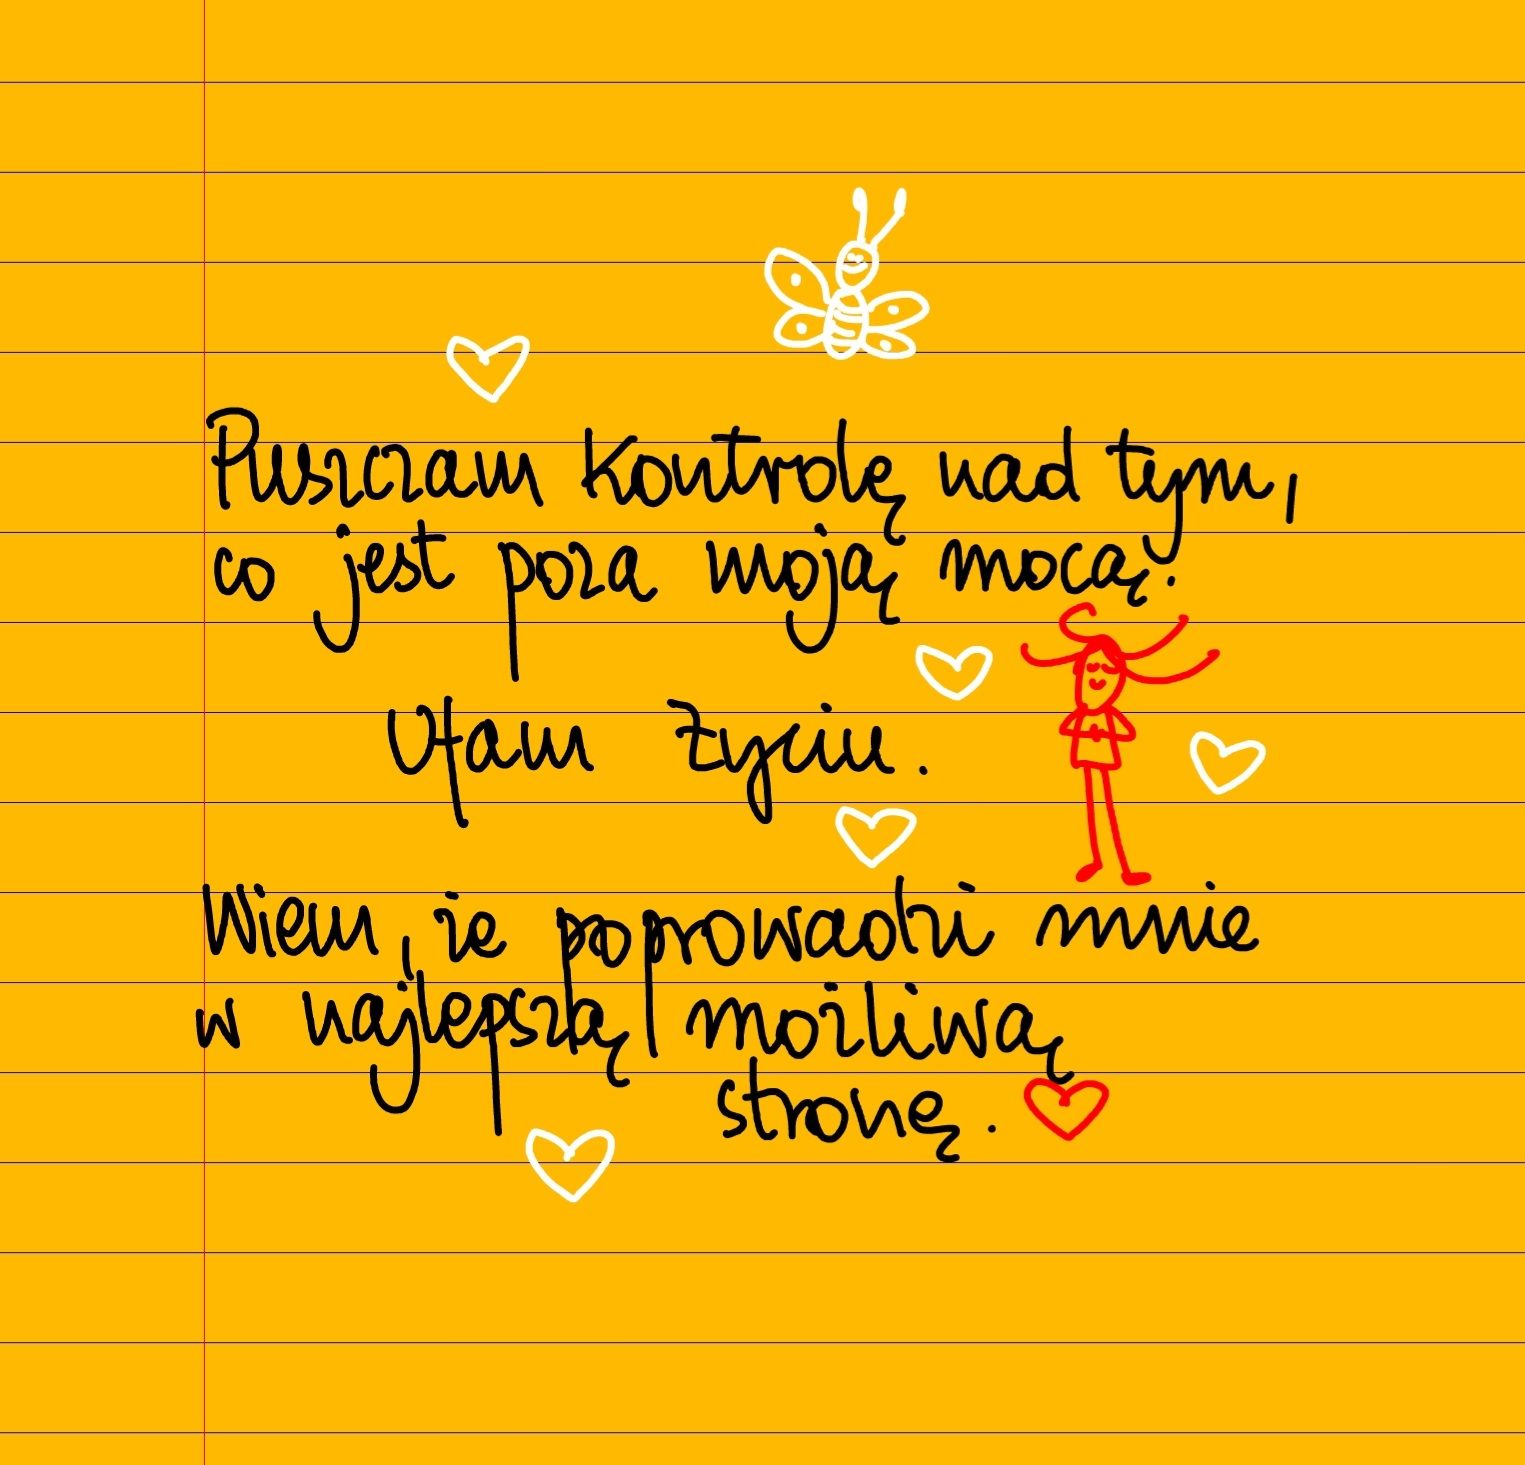 Puszczam kontrolę nad tym,
co jest poza moją mocą.
Ufam życiu.
Wiem, że poprowadzi mnie
w najlepszą możliwą
stronę.